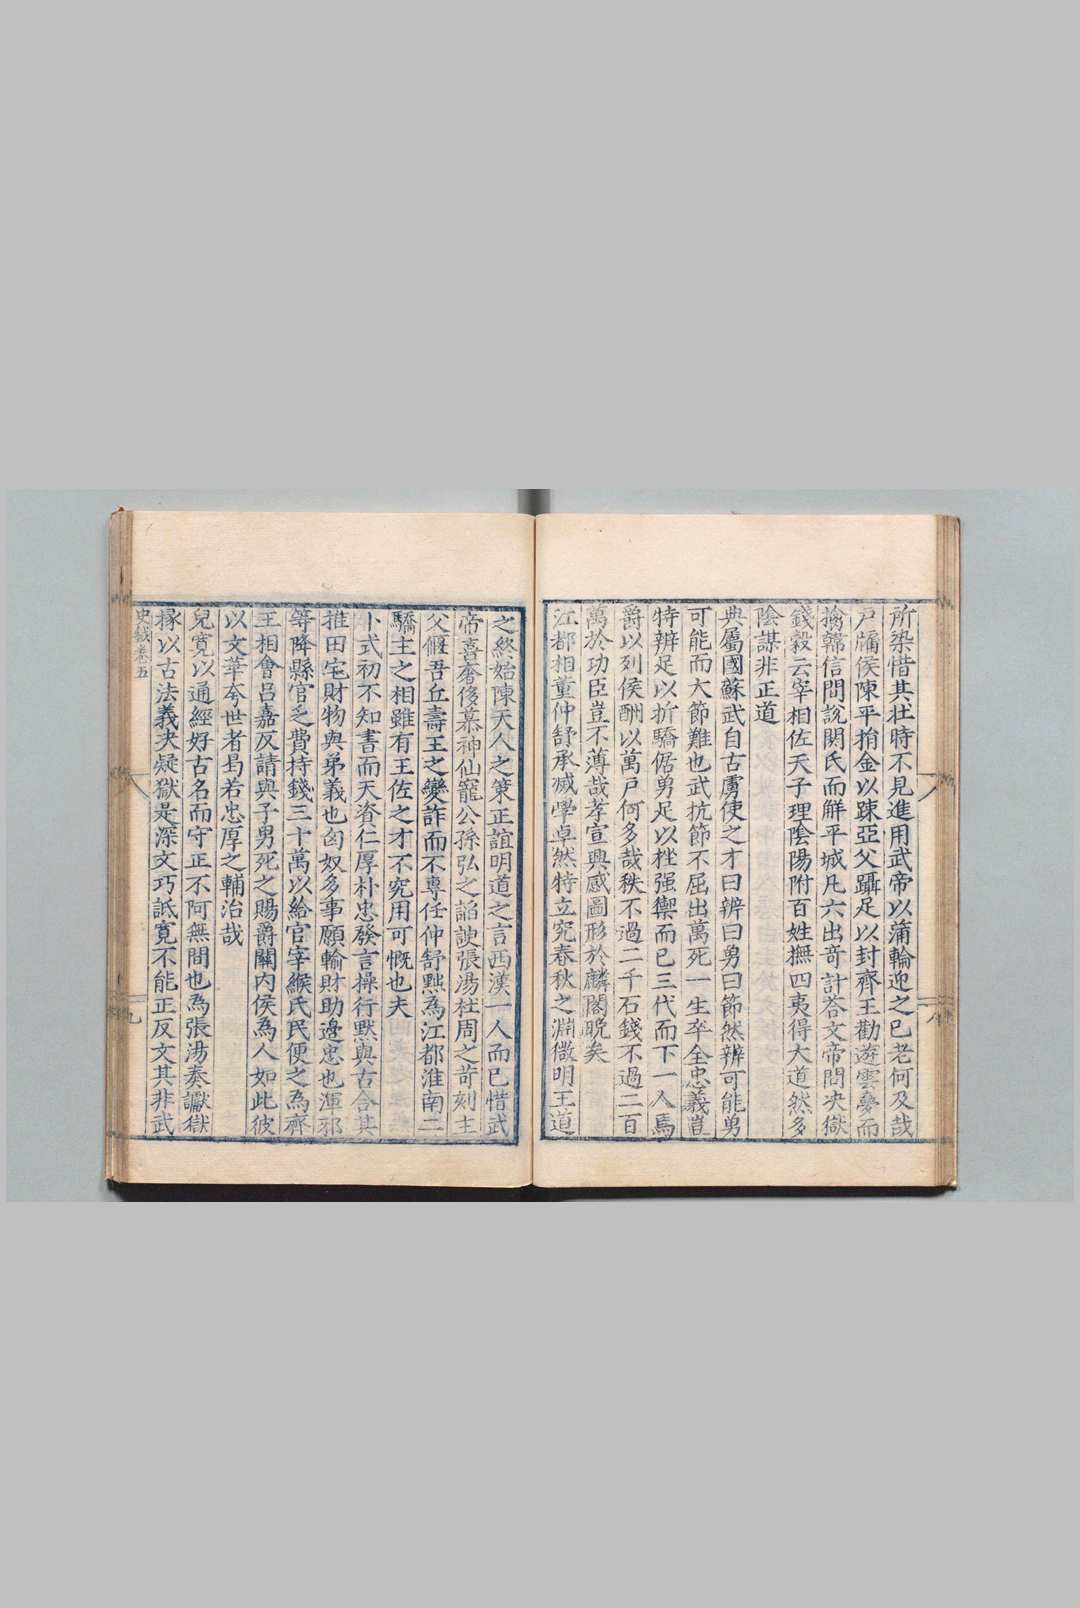 所染惜其壮時不見進用武帝以蒲輪迎之已老何及哉
戸牖侯陳平捐金以踈亞父躡足以封齊王勸遊雲夢而
擒韓信間說閼氏而觧平城凡六出竒計荅文帝問决獄
錢穀云宰相佐天子理陰陽附百姓撫四夷得大道然多
陰謀非正道
典屬國蘇武自古虜使之才曰辨曰勇曰節然辨可能勇
可能而大節難也武抗節不屈出萬死一生卒全忠義豈
特辨足以折驕倨勇足以挫强禦而已三代而下一人焉
爵以列侯酬以萬戸何多哉秩不過二千石錢不過二百
萬於功臣豈不薄哉孝宣興感圖形於麟閣晚矣
江都相董仲舒承滅學卓然特立究春秋之淵微明王道
之終始陳天人之策正誼明道之言西漢一人而已惜武
帝喜奢侈慕神仙寵公孫弘之謟諛張湯杜周之苛刻主
父偃吾丘壽王之變詐而不專任仲舒㸃為江都淮南二
驕主之相雖有王佐之才不究用可慨也夫
卜式初不知書而天資仁厚朴忠發言操行默與古合其
推田宅財物與弟義也匈奴多事願輸財助邊忠也渾邪
等降縣官乏費持錢三十萬以給官宰緱氏民便之為齊
王相會呂嘉反請與子男死之賜爵關内侯為人如此彼
以文華夸世者曷若忠厚之輔治哉
兒寛以通經好古名而守正不阿無間也為張湯奏讞獄
掾以古法義决疑獄是深文巧詆寛不能正反文其非武
史鉞卷五
八
九